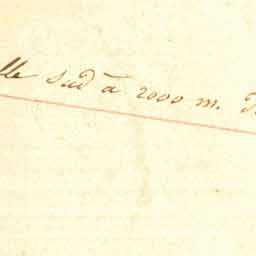 lle sud à 2000 m.